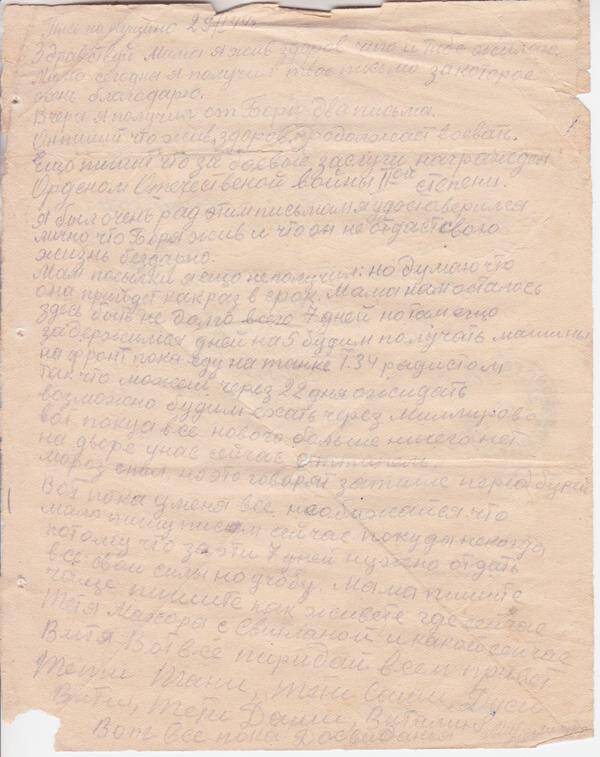 Письмо пущино 29/II 44г
Здравствуй Мама я жив здоров чего и тебе желаю.
Мама сегодня я получил твое письмо за которое
очень благодарю.
Вчера я получил от Бори два письма.
Он пишит что жив, здоров, продолжает воевать.
Ещо пишит что за боевые заслуги награжден
Орденом Отечественой войны II ой степени.
Я был очень рад этим письмам я удостоверился
лично что Боря жив и что он не отдаст свою
жизнь бездарно.
Мам посылки я ещо не получил: но думаю что
она прийдет как раз в срок. Мама нам осталось
здесь быть не долго всего 7 дней но там ещо
задержимся дней на 5 будим получать машины
на фронт пока еду на танке Т.34 радистом
так что можеш через 22 дня ожидать
возможно будим ехать через Миллирово
вот покуа все нового больше ничего нет
на дворе у нас сейчас оттипель.
мороз спал, но это говорят затишье перед бурей
Вот пока у меня все. не обижайся что
мало пишу писем сейчас покуда некогда
потому что за эти 7 дней нужно отдать
все свои силы на учобу. Мама пишите
чаще пишите как живете где сейчас
Тетя Мажора с Свитланой и как сейчас
Витя, Вот все пиридай всем привет
Тети Тани, тети Сони, Дуси
Вити, Тети Даши, Виталию
Вот все пока Досвидания